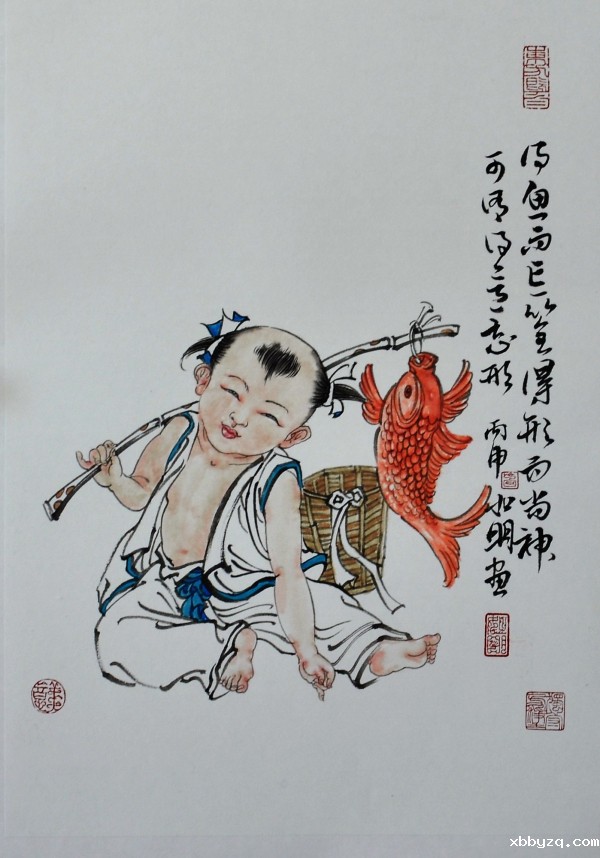 得鱼而忘筌得形而尚神
可谓得意忘形 丙申 如明画
xbbyzq.com